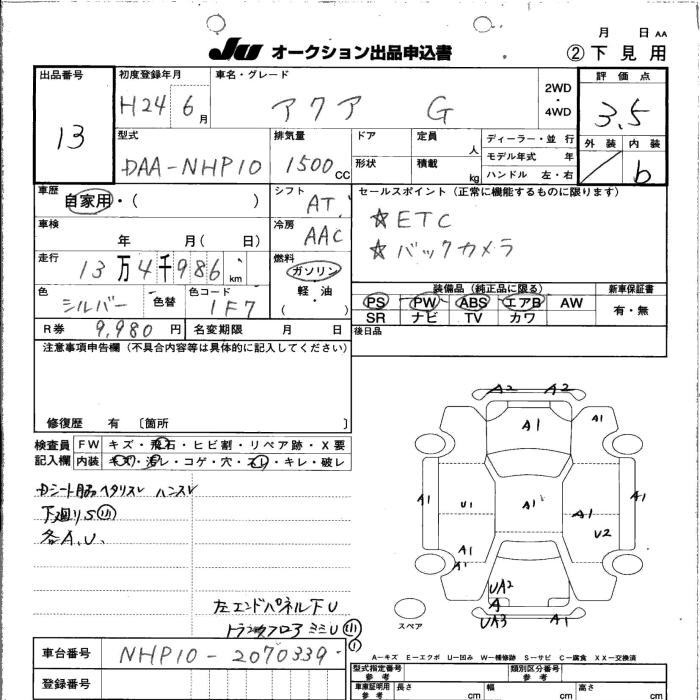 月 日 AA
JU オークション出品申込書 ②下見用
出品番号 初度登録年月 車名・グレード 評価点
13 H24 6月 アクア G 2WD・4WD 3.5
型式 排気量 ドア 定員 人 ディーラー・並行 外装 内装
DAA-NHP10 1500cc 形状 積載 kg モデル年式 年 b
ハンドル 左・右
車歴 自家用・( ) シフト AT セールスポイント(正常に機能するものに限ります)
車検 年 月( 日) 冷房 AAC ☆ETC
☆バックカメラ
走行 13万4千986km 燃料 ガソリン・軽油・( )
色 シルバー 色替 色コード 1F7
装備品(純正品に限る) 新車保証書
PS PW ABS エアB AW 有・無
SR ナビ TV カワ
R券 9,980円 名変期限 月 日 後日品
注意事項申告欄(不具合内容等は具体的に記入してください)
修復歴 有 〔箇所 〕
検査員記入欄 FW キズ・飛石・ヒビ割・リペア跡・X要
内装 キズ・汚レ・コゲ・穴・スレ・キレ・破レ
下廻りS小
各A.U.
左エンドパネル下U
A2 A2
A1 A1
A1 U1 A1 A1 A1
U2
A1
A1
UA2
A
UA3 A1
スペア
A-キズ E-エクボ U-凹み W-補修跡 S-サビ C-腐食 XX-交換済
車台番号 NHP10-2070339
登録番号
型式指定番号 参考 類別区分番号 参考
車庫証明用 参考 長さ cm 幅 cm 高さ cm